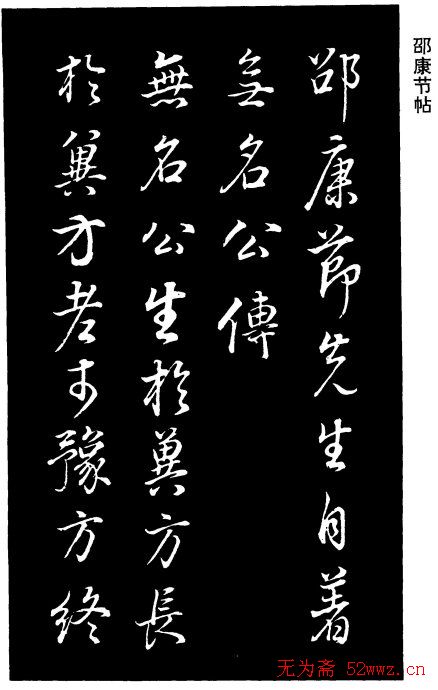 邵康节帖
邵康節先生自著
無名公傳
無名公生於冀方長
於冀方老於豫方終
无为斋 52wwz.cn